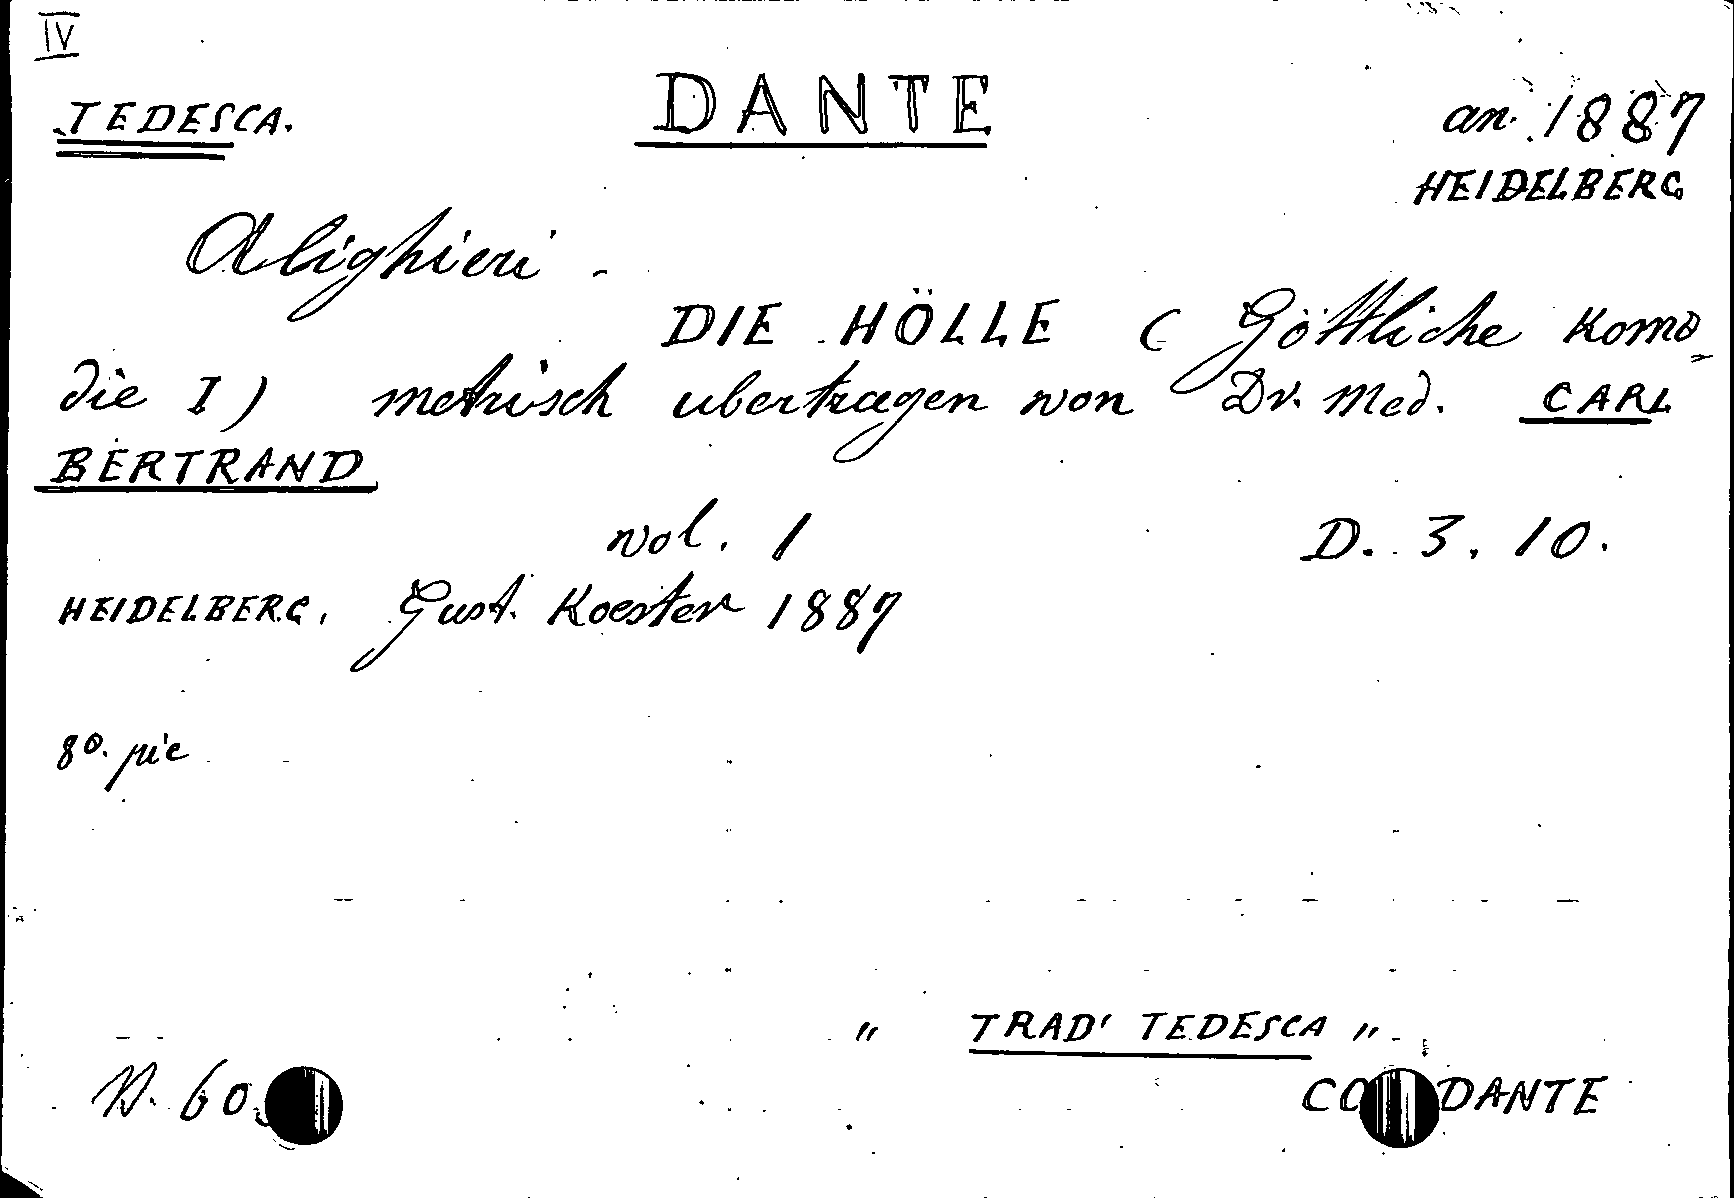 IV
TEDESCA. DANTE an. 1887
HEIDELBERG
Alighieri -
DIE HÖLLE ( Göttliche Komo-
die I ) metrisch ubertragen von Dr. Med. CARL
BERTRAND
vol. 1 D. 3. 10.
HEIDELBERG, Gust. Koester 1887
8º. pic
" TRAD' TEDESCA "
N. 60 DANTE